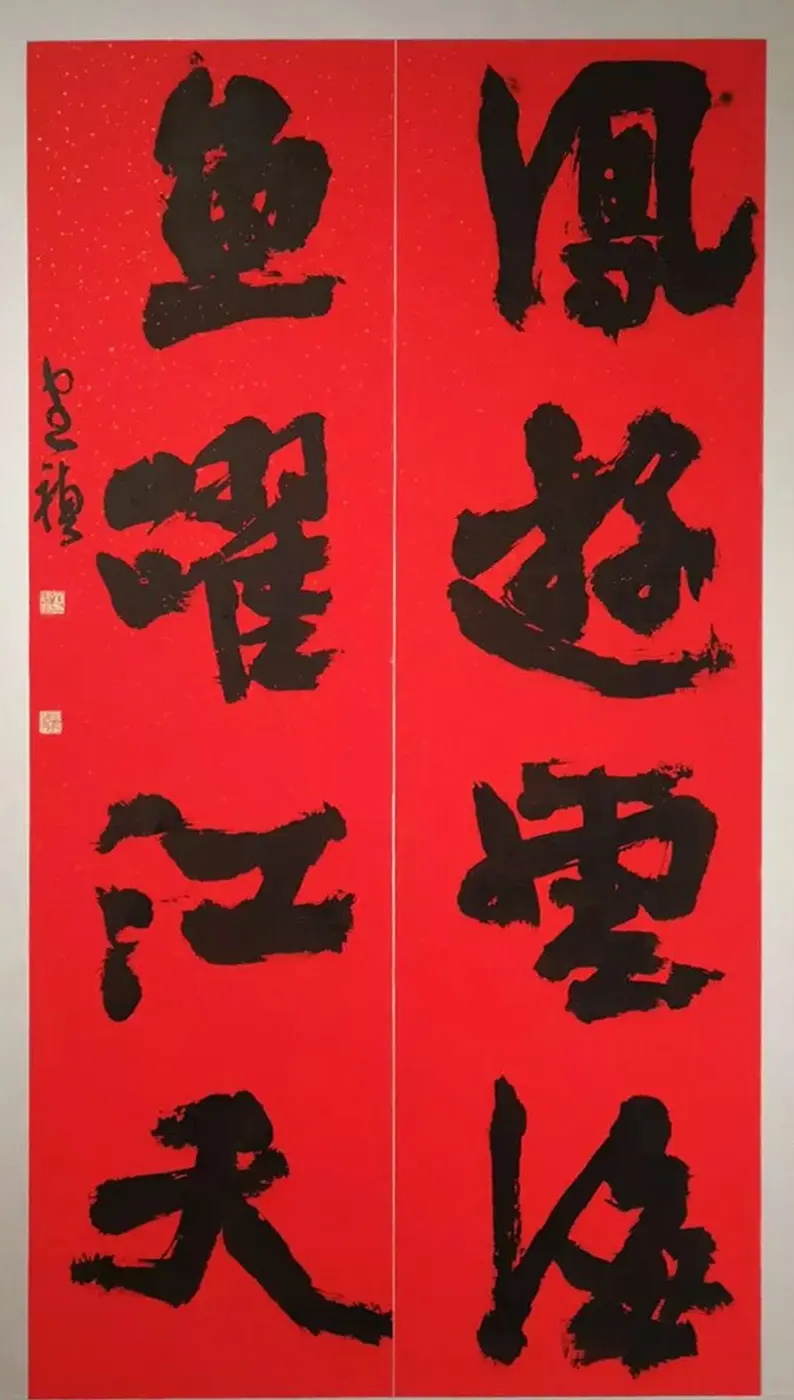 鳳遊雲海
魚躍江天